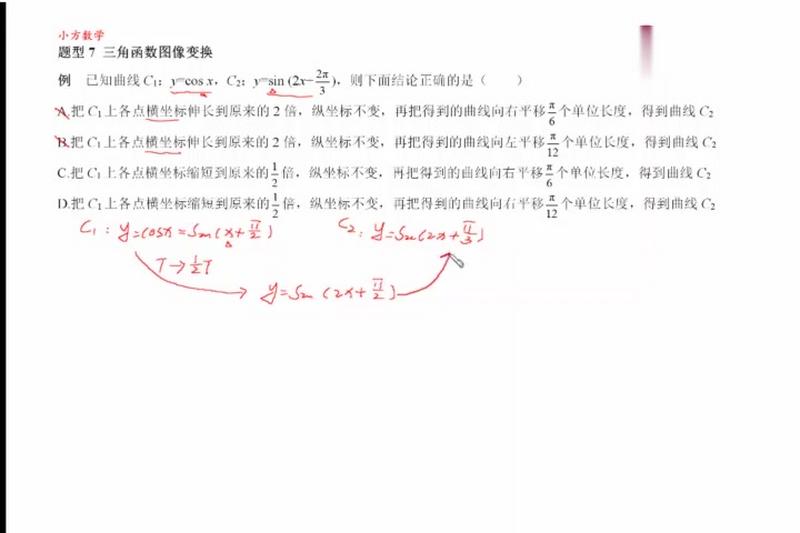 小方数学
题型 7 三角函数图像变换
例 已知曲线 C₁：y=cos x，C₂：y=sin (2x-2π/3)，则下面结论正确的是（ ）
A.把 C₁ 上各点横坐标伸长到原来的 2 倍，纵坐标不变，再把得到的曲线向右平移π/6个单位长度，得到曲线 C₂
B.把 C₁ 上各点横坐标伸长到原来的 2 倍，纵坐标不变，再把得到的曲线向左平移π/12个单位长度，得到曲线 C₂
C.把 C₁ 上各点横坐标缩短到原来的1/2倍，纵坐标不变，再把得到的曲线向右平移π/6个单位长度，得到曲线 C₂
D.把 C₁ 上各点横坐标缩短到原来的1/2倍，纵坐标不变，再把得到的曲线向右平移π/12个单位长度，得到曲线 C₂
C₁：y=cosx=sin(x+π/2) C₂：y=sin(2x+π/3)
T→1/2T
y=sin(2x+π/2)